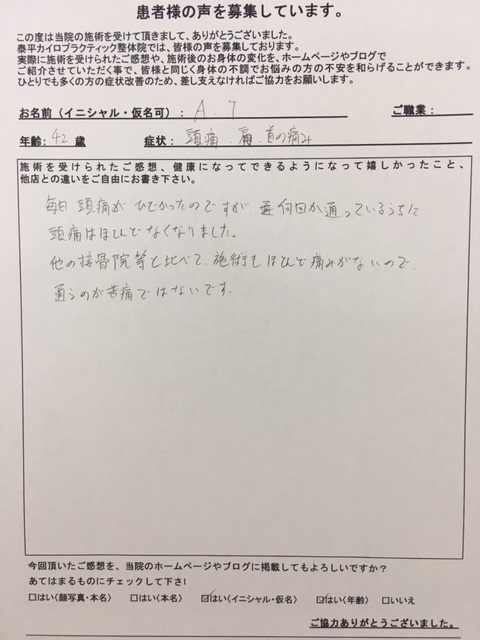 患者様の声を募集しています。
この度は当院の施術を受けて頂きまして、ありがとうございました。
泰平カイロプラクティック整体院では、皆様の声を募集しております。
実際に施術を受けられたご感想や、施術後のお身体の変化を、ホームページやブログで
ご紹介させていただく事で、皆様と同じく身体の不調でお悩みの方の不安を和らげることができます。
ひとりでも多くの方の症状改善のため、差し支えなければご協力をお願いします。
お名前（イニシャル・仮名可）： A. T ご職業：
年齢：42 歳 症状： 頭痛．肩．首の痛み
施術を受けられたご感想、健康になってできるようになって嬉しかったこと、
他店との違いをご自由にお書き下さい。
毎日 頭痛がひどかったのですが 週何回か通っているうちに
頭痛はほとんどなくなりました。
他の接骨院等と比べて、施術もほとんど痛みがないので、
通うのが苦痛ではないです。
今回頂いたご感想を、当院のホームページやブログに掲載してもよろしいですか？
あてはまるものにチェックして下さ!
□はい（顔写真・本名） □はい（本名） ☑はい（イニシャル・仮名） ☑はい（年齢） □いいえ
ご協力ありがとうございました。